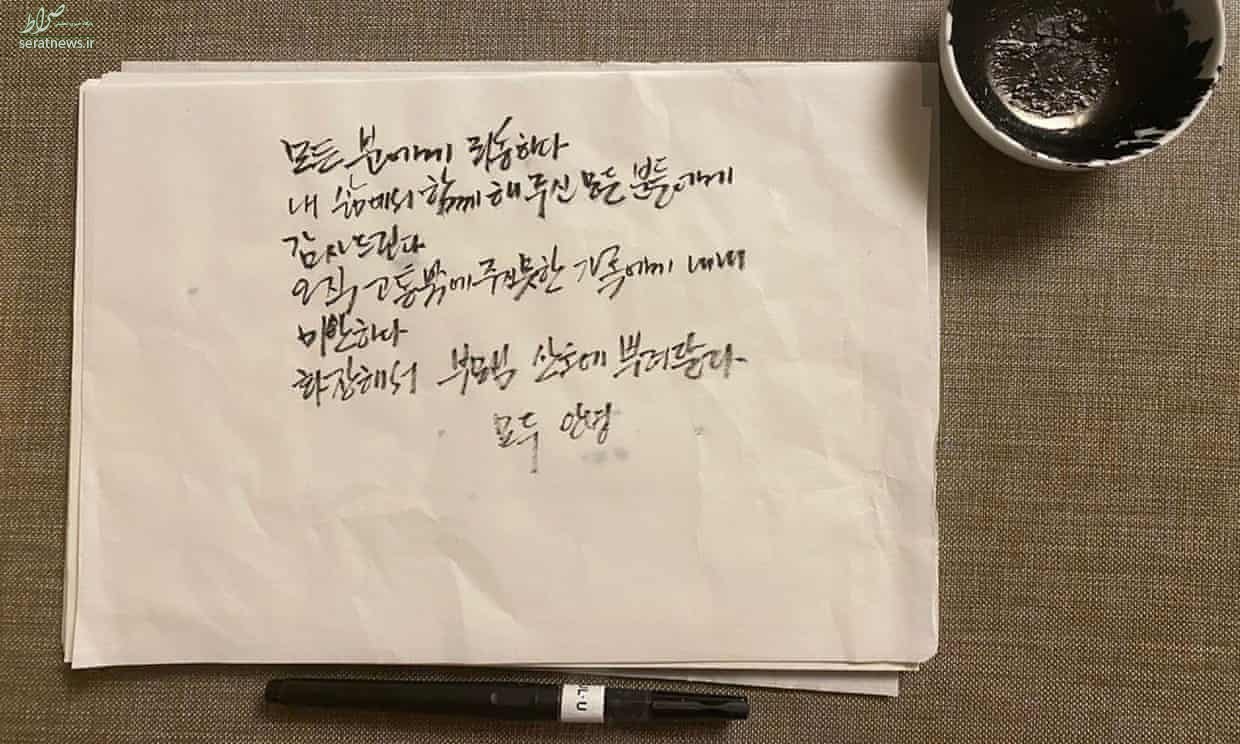 صراط
seratnews.ir
모든 분에게 죄송하다
내 삶에서 함께 해 주신 모든 분들에게
감사드린다
오직 고통밖에 주지못한 가족에게 내내
미안하다
화장해서 부모님 산소에 뿌려달라
모두 안녕
UL·U